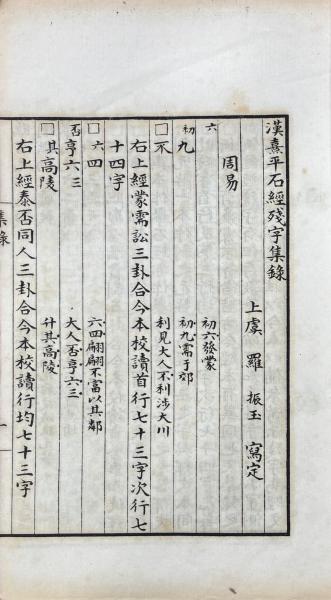 漢熹平石經殘字集錄
上虞 羅 振玉 寫定
周易
六 初六發蒙
初九 初九需于郊
□不 利見大人不利涉大川
右上經蒙需訟三卦合今本校讀首行七十三字次行七
十四字
□六四 六四翩翩不富以其鄰
否亨六三 大人否亨六三
□其高陵 升其高陵
右上經泰否同人三卦合今本校讀行均七十三字
集錄
一